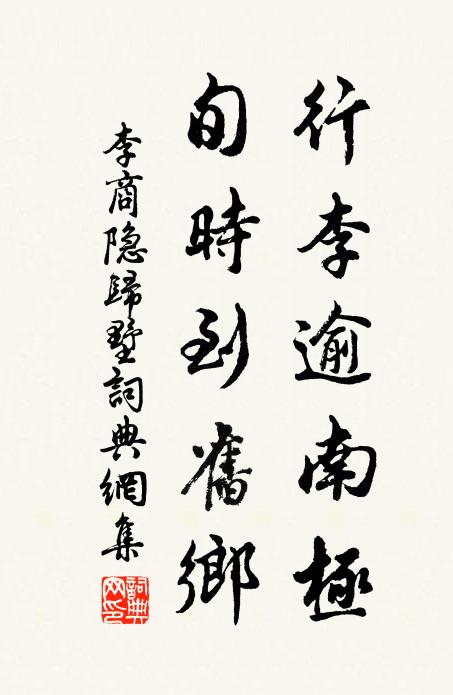 行李逾南極
旬時到舊鄉
李商隐歸墅詞典網集
詞典網印